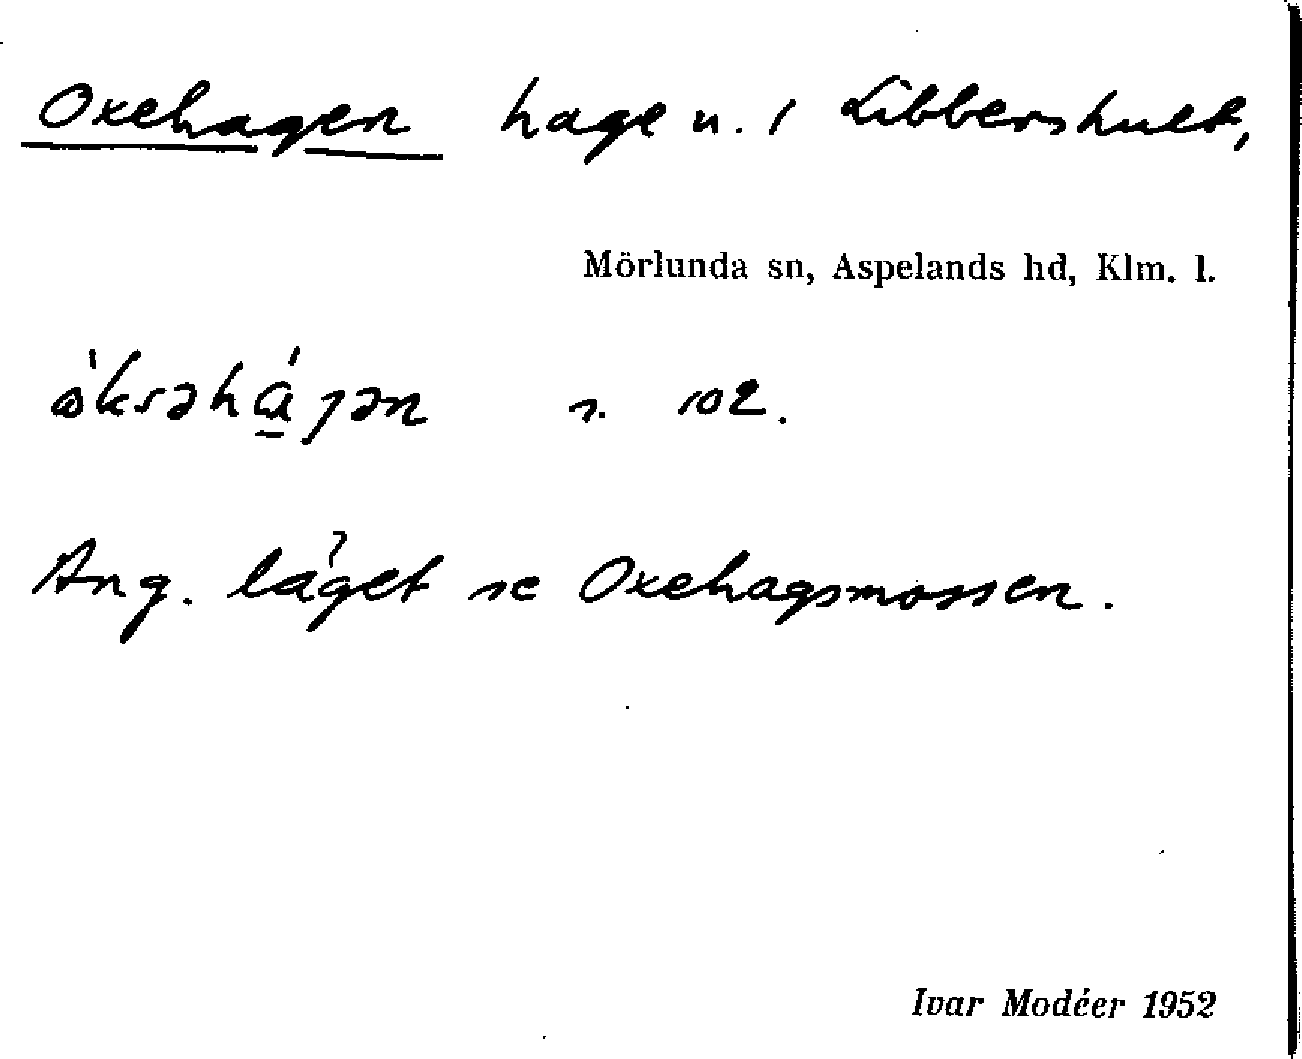 Oxehagen hage u. / Libbershult,
Mörlunda sn, Aspelands hd, Klm. l.
s. 102.
Ang. läget se Oxehagsmossen.
Ivar Modéer 1952